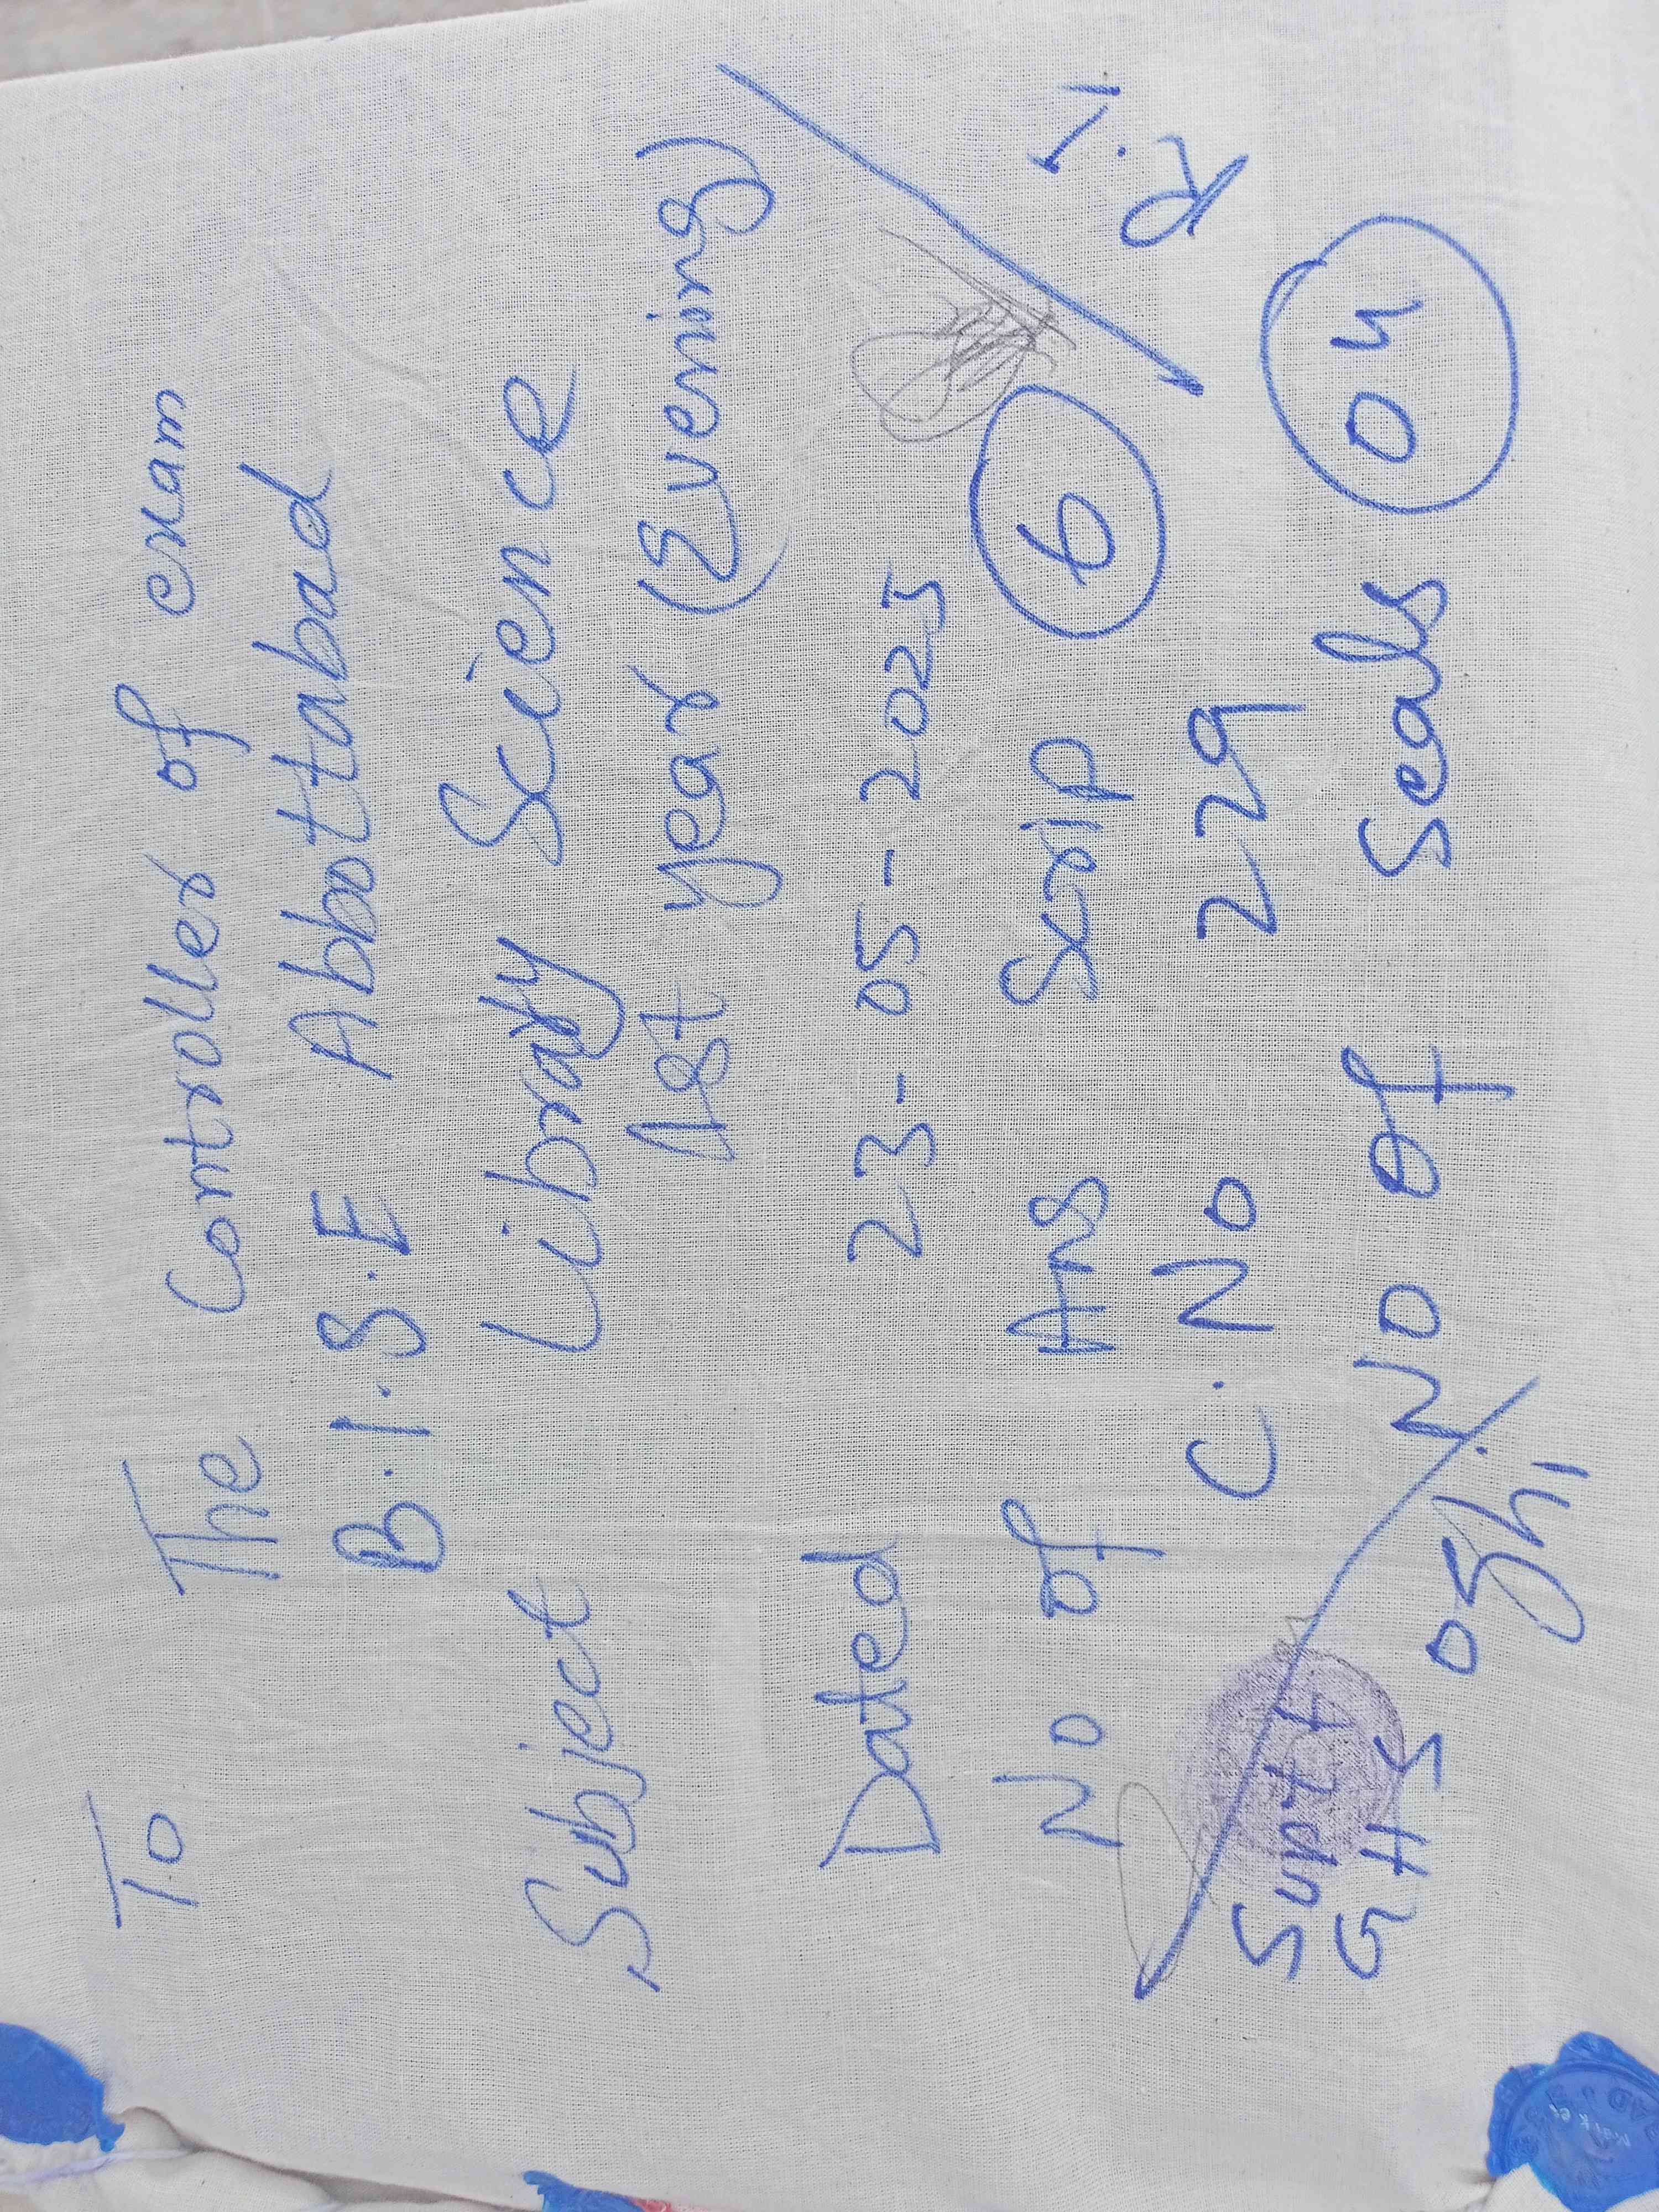 To
The Controller of exam
B.I.S.E Abbottabad
Subject Library Science
1st year (Evening)
Dated 23-05-2025
No of Ans Scrip 6
C.No 229
No of Seals 04
R.I
Supt
GHS Oghi